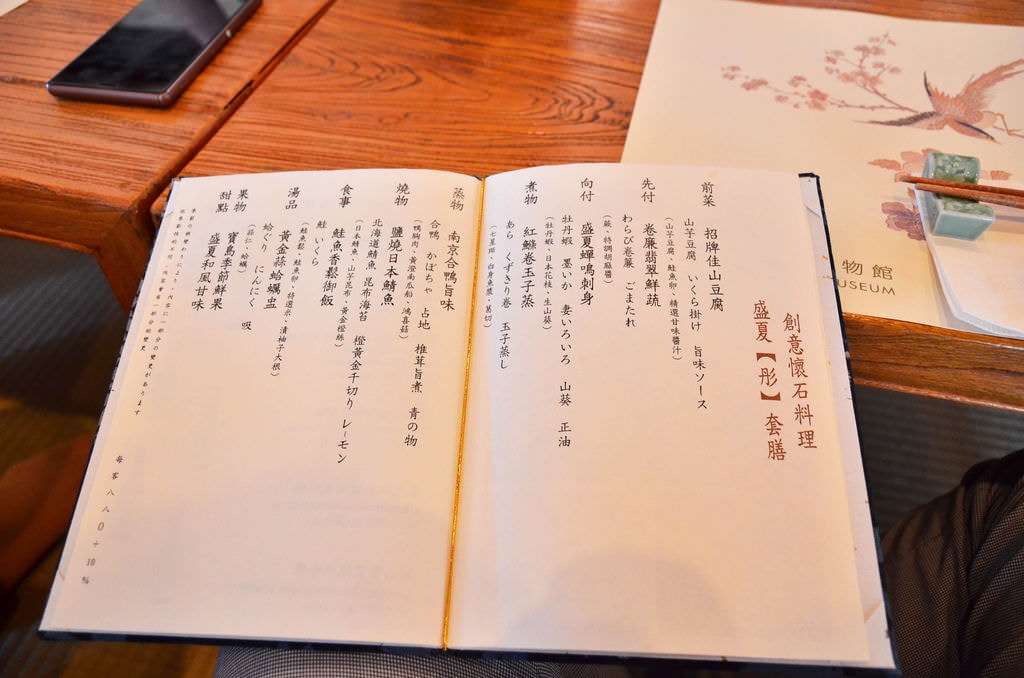 創意懷石料理
盛夏【彤】套膳
前菜 招牌佳山豆腐
山芋豆腐 いくら掛け 旨味ソース
(山芋豆腐、鮭魚卵、精選甘味醬汁)
先付 卷廉翡翠鮮蔬
わらび卷廉 ごまたれ
(蕨、特調胡麻醬)
向付 盛夏蟬鳴刺身
牡丹蝦 墨いか 妻いろいろ 山葵 正油
(牡丹蝦、日本花枝、生山葵)
煮物 紅鰷卷玉子蒸
あら くずきり卷 玉子蒸し
(七星斑、白身魚漿、葛切)
蒸物 南京合鴨旨味
合鴨 かぼちゃ 占地 椎茸旨煮 青の物
(鴨胸肉、黃澄南瓜船、鴻喜菇)
燒物 鹽燒日本鯖魚
北海道鯖魚 昆布海苔 橙黃金千切り レーモン
(日本鯖魚、山芋昆布、黃金橙絲)
食事 鮭魚香鬆御飯
鮭 いくら
(鮭魚鬆、鮭魚卵、特選米、漬柚子大根)
湯品 黃金蒜蛤蠣盅
蛤ぐり にんにく 吸
(蒜仁、蛤蠣)
果物 寶島季節鮮果
甜點 盛夏和風甘味
季節の時變わりにより、內容に一部分の變更があります
每客八八0+10%
物館
USEUM